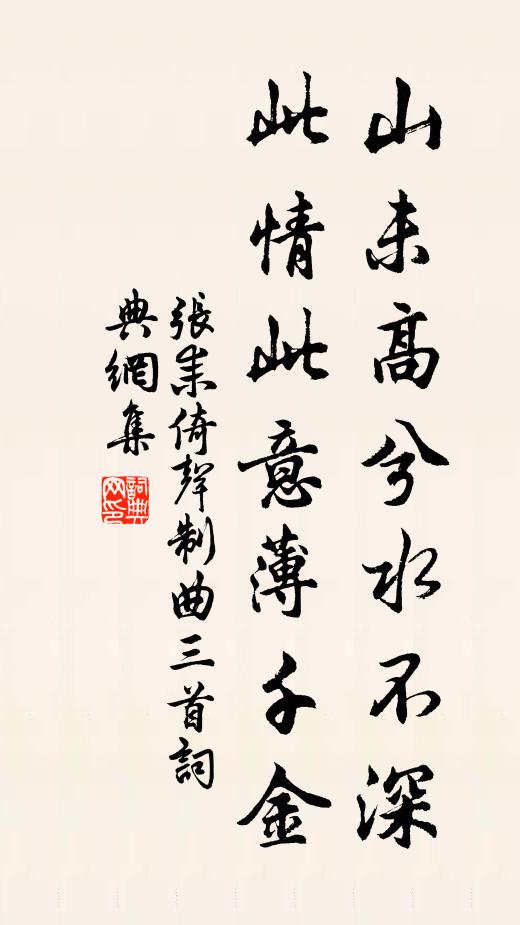 山未高兮水不深
此情此意薄千金
張耒倚聲制曲三首詞
典網集
詞典網印